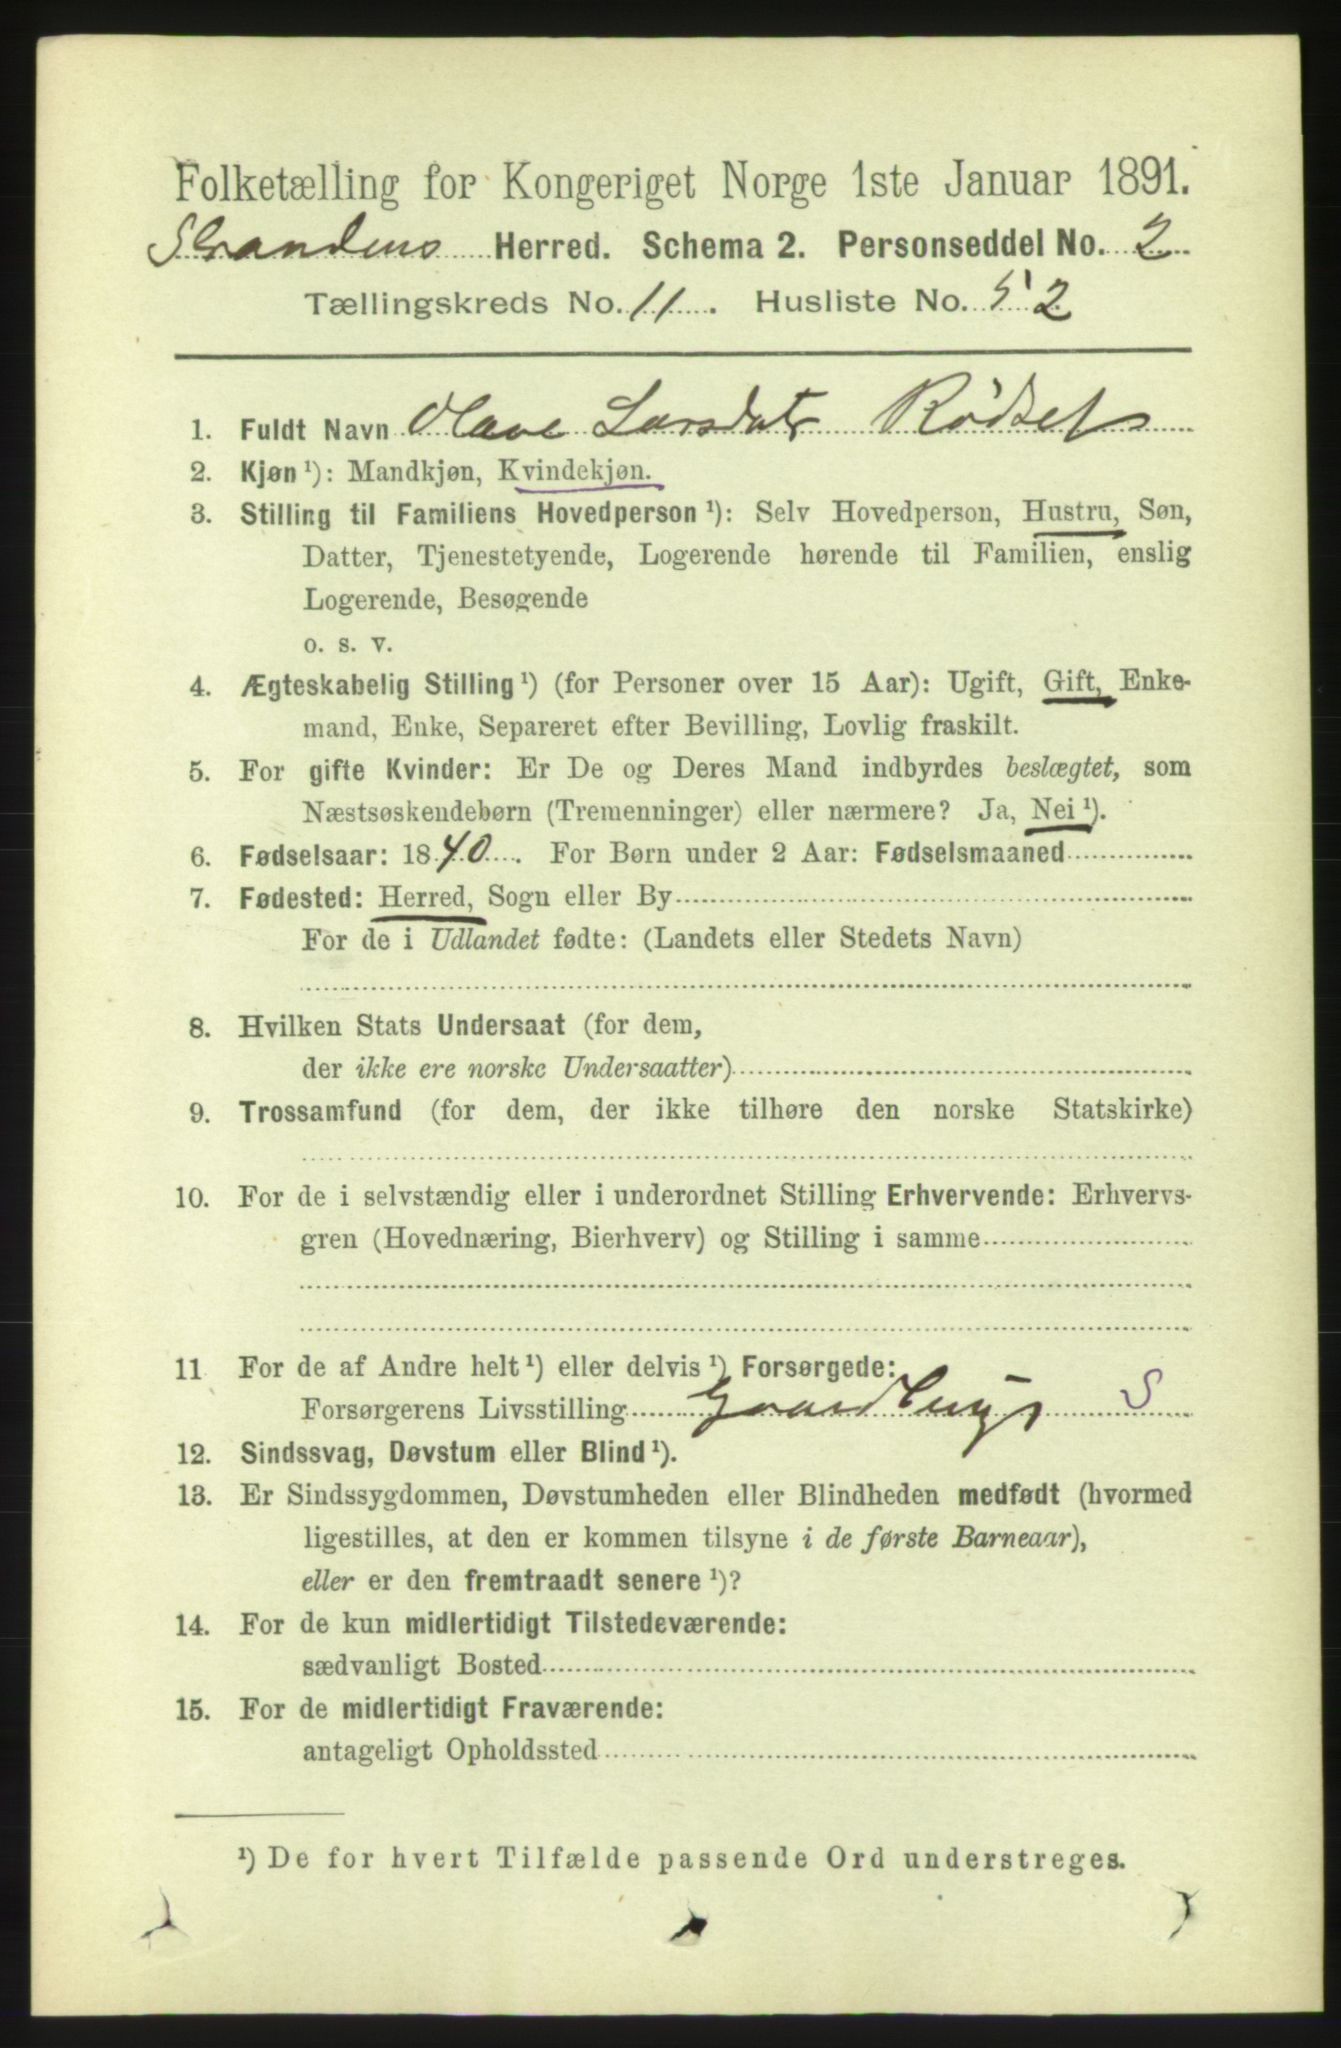 Folketælling for Kongeriget Norge 1ste Januar 1891.
Strandens Herred. Schema 2. Personseddel No. 2
Tællingskreds No. 11. Husliste No. 52
1. Fuldt Navn Olave Larsdatr Rödset
2. Kjøn ¹): Mandkjøn, Kvindekjøn.
3. Stilling til Familiens Hovedperson ¹): Selv Hovedperson, Hustru, Søn,
Datter, Tjenestetyende, Logerende hørende til Familien, enslig
Logerende, Besøgende
o. s. v.
4. Ægteskabelig Stilling ¹) (for Personer over 15 Aar): Ugift, Gift, Enke-
mand, Enke, Separeret efter Bevilling, Lovlig fraskilt.
5. For gifte Kvinder: Er De og Deres Mand indbyrdes beslægtet, som
Næstsøskendebørn (Tremenninger) eller nærmere? Ja, Nei ¹).
6. Fødselsaar: 1840. For Børn under 2 Aar: Fødselsmaaned
7. Fødested: Herred, Sogn eller By
For de i Udlandet fødte: (Landets eller Stedets Navn)
8. Hvilken Stats Undersaat (for dem,
der ikke ere norske Undersaatter)
9. Trossamfund (for dem, der ikke tilhøre den norske Statskirke)
10. For de i selvstændig eller i underordnet Stilling Erhvervende: Erhvervs-
gren (Hovednæring, Bierhverv) og Stilling i samme
11 For de af Andre helt ¹) eller delvis ¹) Forsørgede:
Forsørgerens Livsstilling S
12. Sindssvag, Døvstum eller Blind ¹).
13. Er Sindssygdommen, Døvstumheden eller Blindheden medfødt (hvormed
ligestilles, at den er kommen tilsyne i de første Barneaar),
eller er den fremtraadt senere ¹)?
14. For de kun midlertidigt Tilstedeværende:
sædvanligt Bosted
15. For de midlertidigt Fraværende:
antageligt Opholdssted
¹) De for hvert Tilfælde passende Ord understreges.